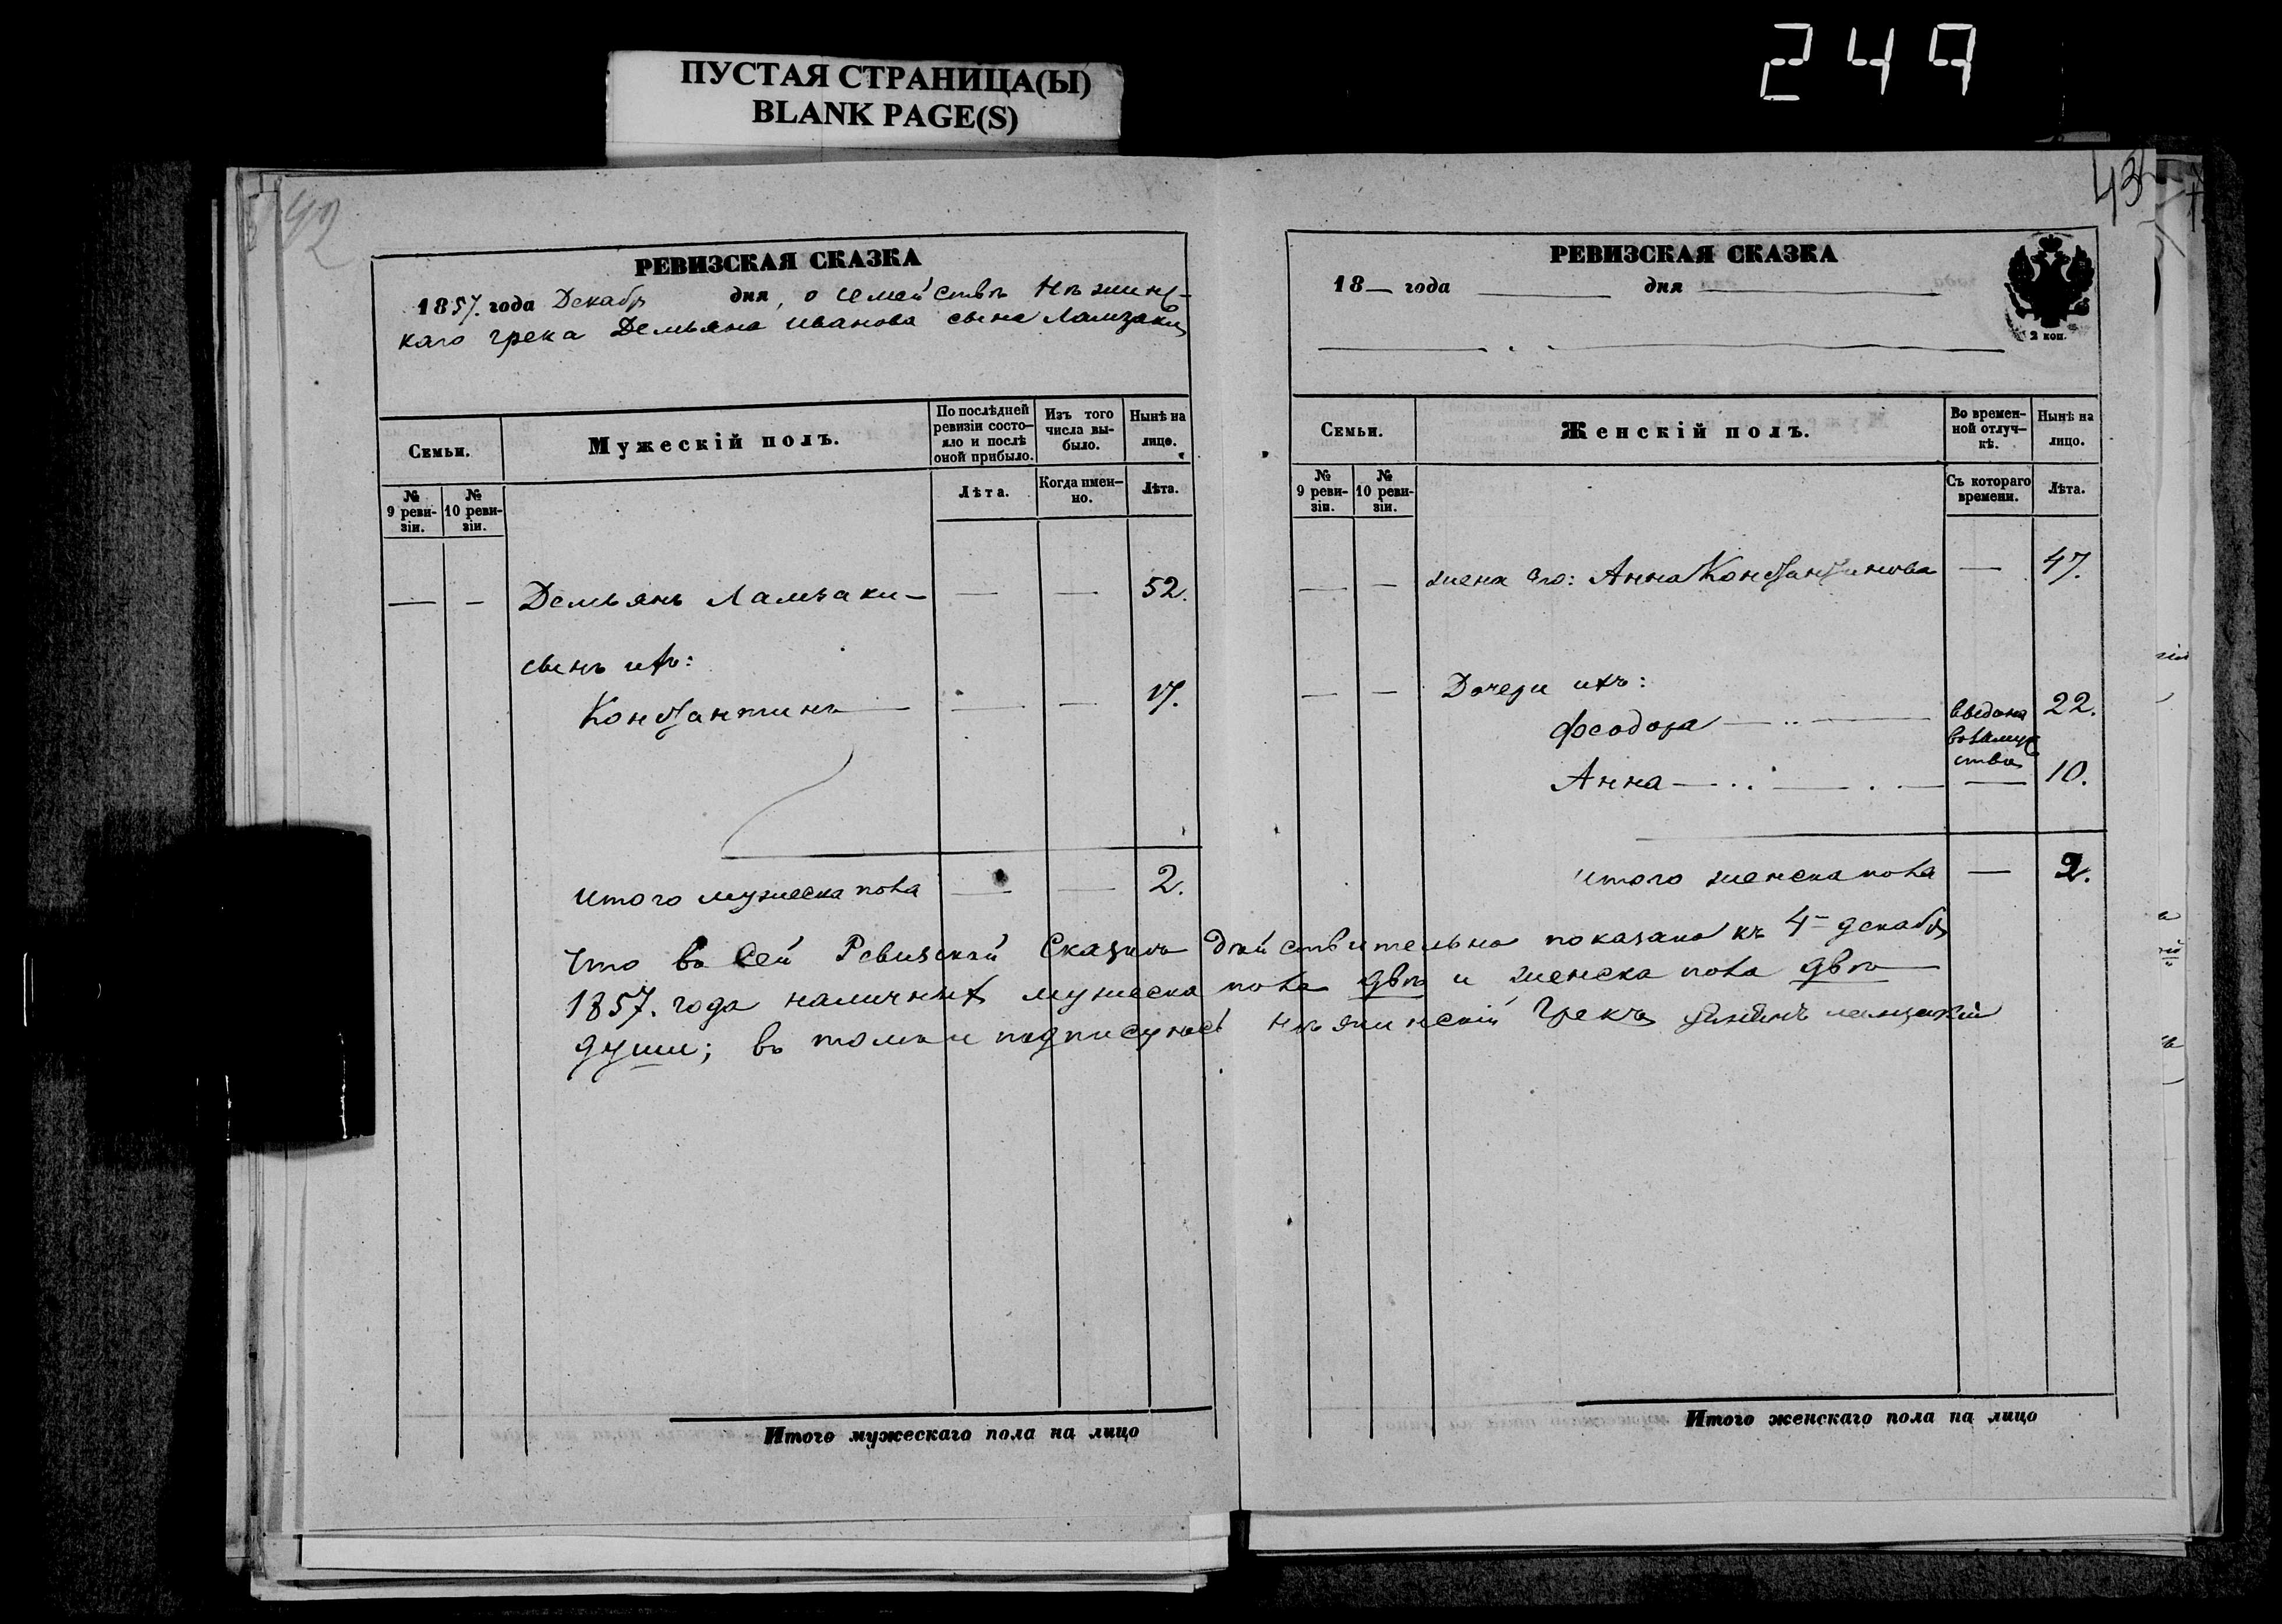 ПУСТАЯ СТРАНИЦА(Ы)
BLANK PAGE(S)
249
42
РЕВИЗСКАЯ СКАЗКА
1857. года Декабр дня, о семействѣ Нѣжинс-
каго грека Демьяна Иванова сына Ламзаки
Семьи.
Мужескій полъ.
По послѣдней ревизіи состо-яло и послѣ оной прибыло.
Изъ того числа вы-было.
Нынѣ на лице.
№ 9 реви-зіи.
№ 10 реви-зіи.
Лѣта.
Когда имен-но.
Лѣта.
— — Демьянъ Ламзаки — — — 52.
сынъ ихъ:
Константинъ — — — 17.
Итого мужеска пола — — 2.
43
РЕВИЗСКАЯ СКАЗКА
18— года — дня —
2 коп.
Семьи.
Женскій полъ.
Во времен-ной отлуч-кѣ.
Нынѣ на лицо.
№ 9 реви-зіи.
№ 10 реви-зіи.
Съ котораго времени.
Лѣта.
— — жена его: Анна Константинова — 47.
— — Дочери ихъ:
Феодора — 22.
Анна — — 10.
итого женска пола — 2.
Что въ сей Ревизской Сказкѣ дѣйствительно показано къ 4 декабр
1857. года наличныхъ мужеска пола двѣ и женска пола двѣ
души; въ томъ и подписуюсь Нѣжинскій Грекъ
Итого мужескаго пола на лицо
Итого женскаго пола на лицо